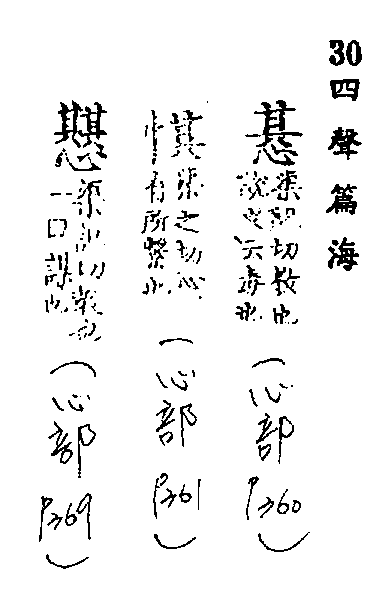 30 四聲篇海
惎 渠記切教也
說文云毒也
(心部 P360)
㥍 渠之切心
有所繫也
(心部 P361)
渠記切教也
一曰謀也
(心部 P369)